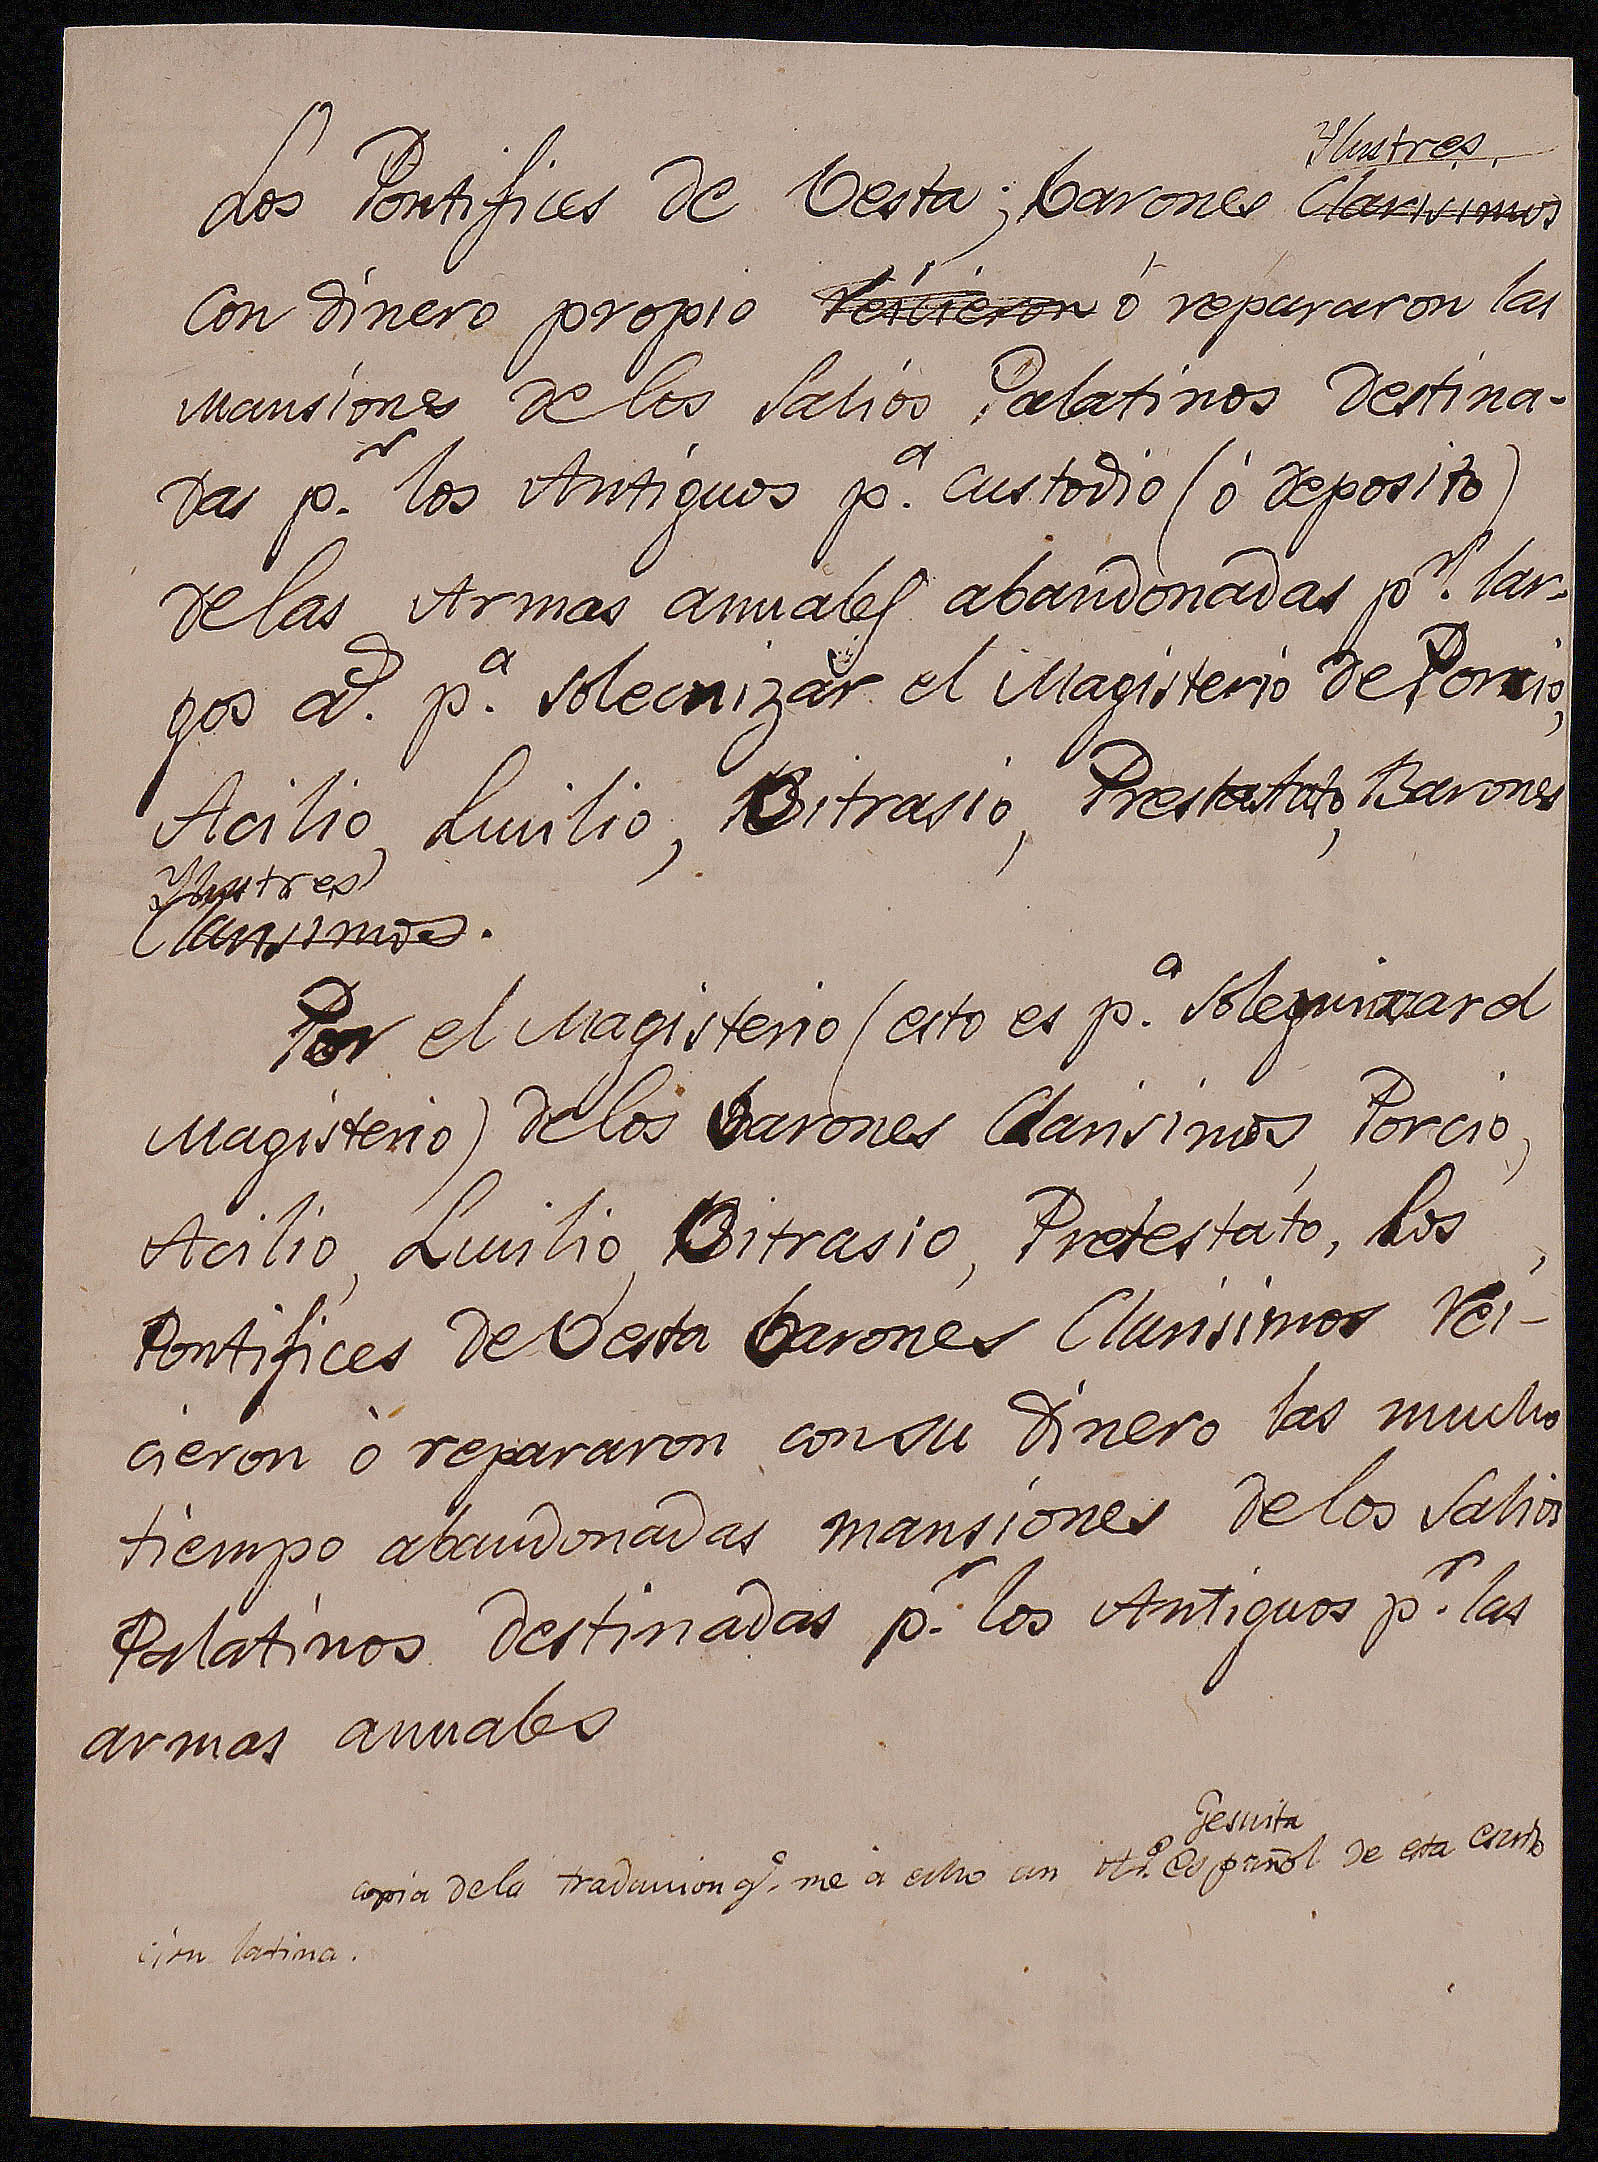 Ilustres
Los Pontifices de Vesta; barones Clarisimos
con dinero propio reicieron ó repararon las
mansiones de los Saliós Palatinos destina-
das p.r los Antiguos p.a custodio (ó deposito)
de las Armas annales abandonadas p.r lar-
gos a.d p.a solecnizar el Magisterio de Porcio,
Acilio, Lucilio, Vitrasio, Prestatato, Barones
Ilustres
Clarisimos.
Por el Magisterio (esto es p.a solegnizar el
Magisterio) de los barones Clarisimos Porcio,
Acilio, Lucilio, Vitrasio, Pretestato, los
Pontifices de Vesta barones Clarisimos rei-
cieron ò repararon con su dinero las mucho
tiempo abandonadas mansiones de los Salios
Palatinos destinadas p.r los Antiguos p.r las
armas annales
Gesuita
copia dela traducion q.e me á echo un español de esta
cion latina.